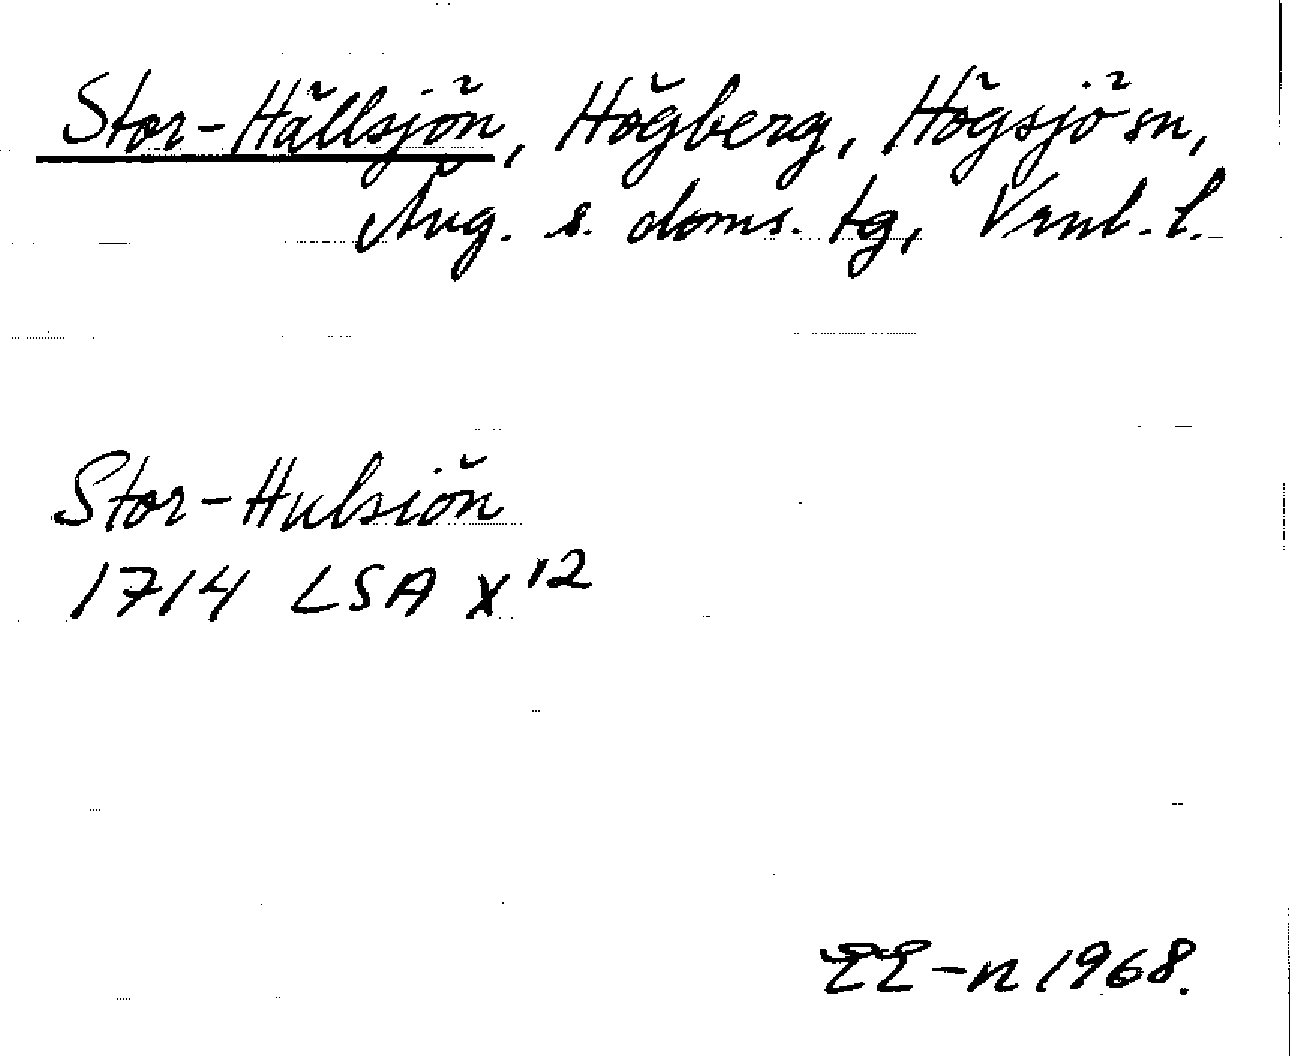 Stor-Hällsjön, Högberg, Högsjö sn,
Ång. s. doms. tg, Vrnl. l.
Stor-Hulsiön
1714 LSA X 12
EE-n 1968.